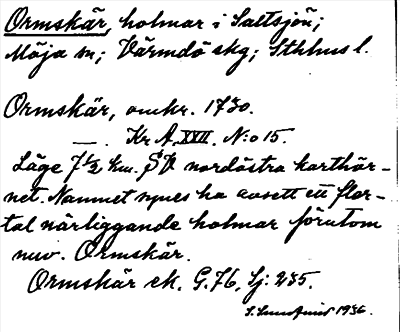 Ormskär, holmar i Saltsjön;
Möja sn; Värmdö skg; Sthlms l.
Ormskär, omkr. 1730.
— . Kr A, XVII. N:o 15.
Läge 7 1/2 km. SV nordöstra karthör-
net. Namnet synes ha avsett ett fler-
tal närliggande holmar förutom
nuv. Ormskär.
Ormskär ek. G. 76, Sj: 235.
1936.